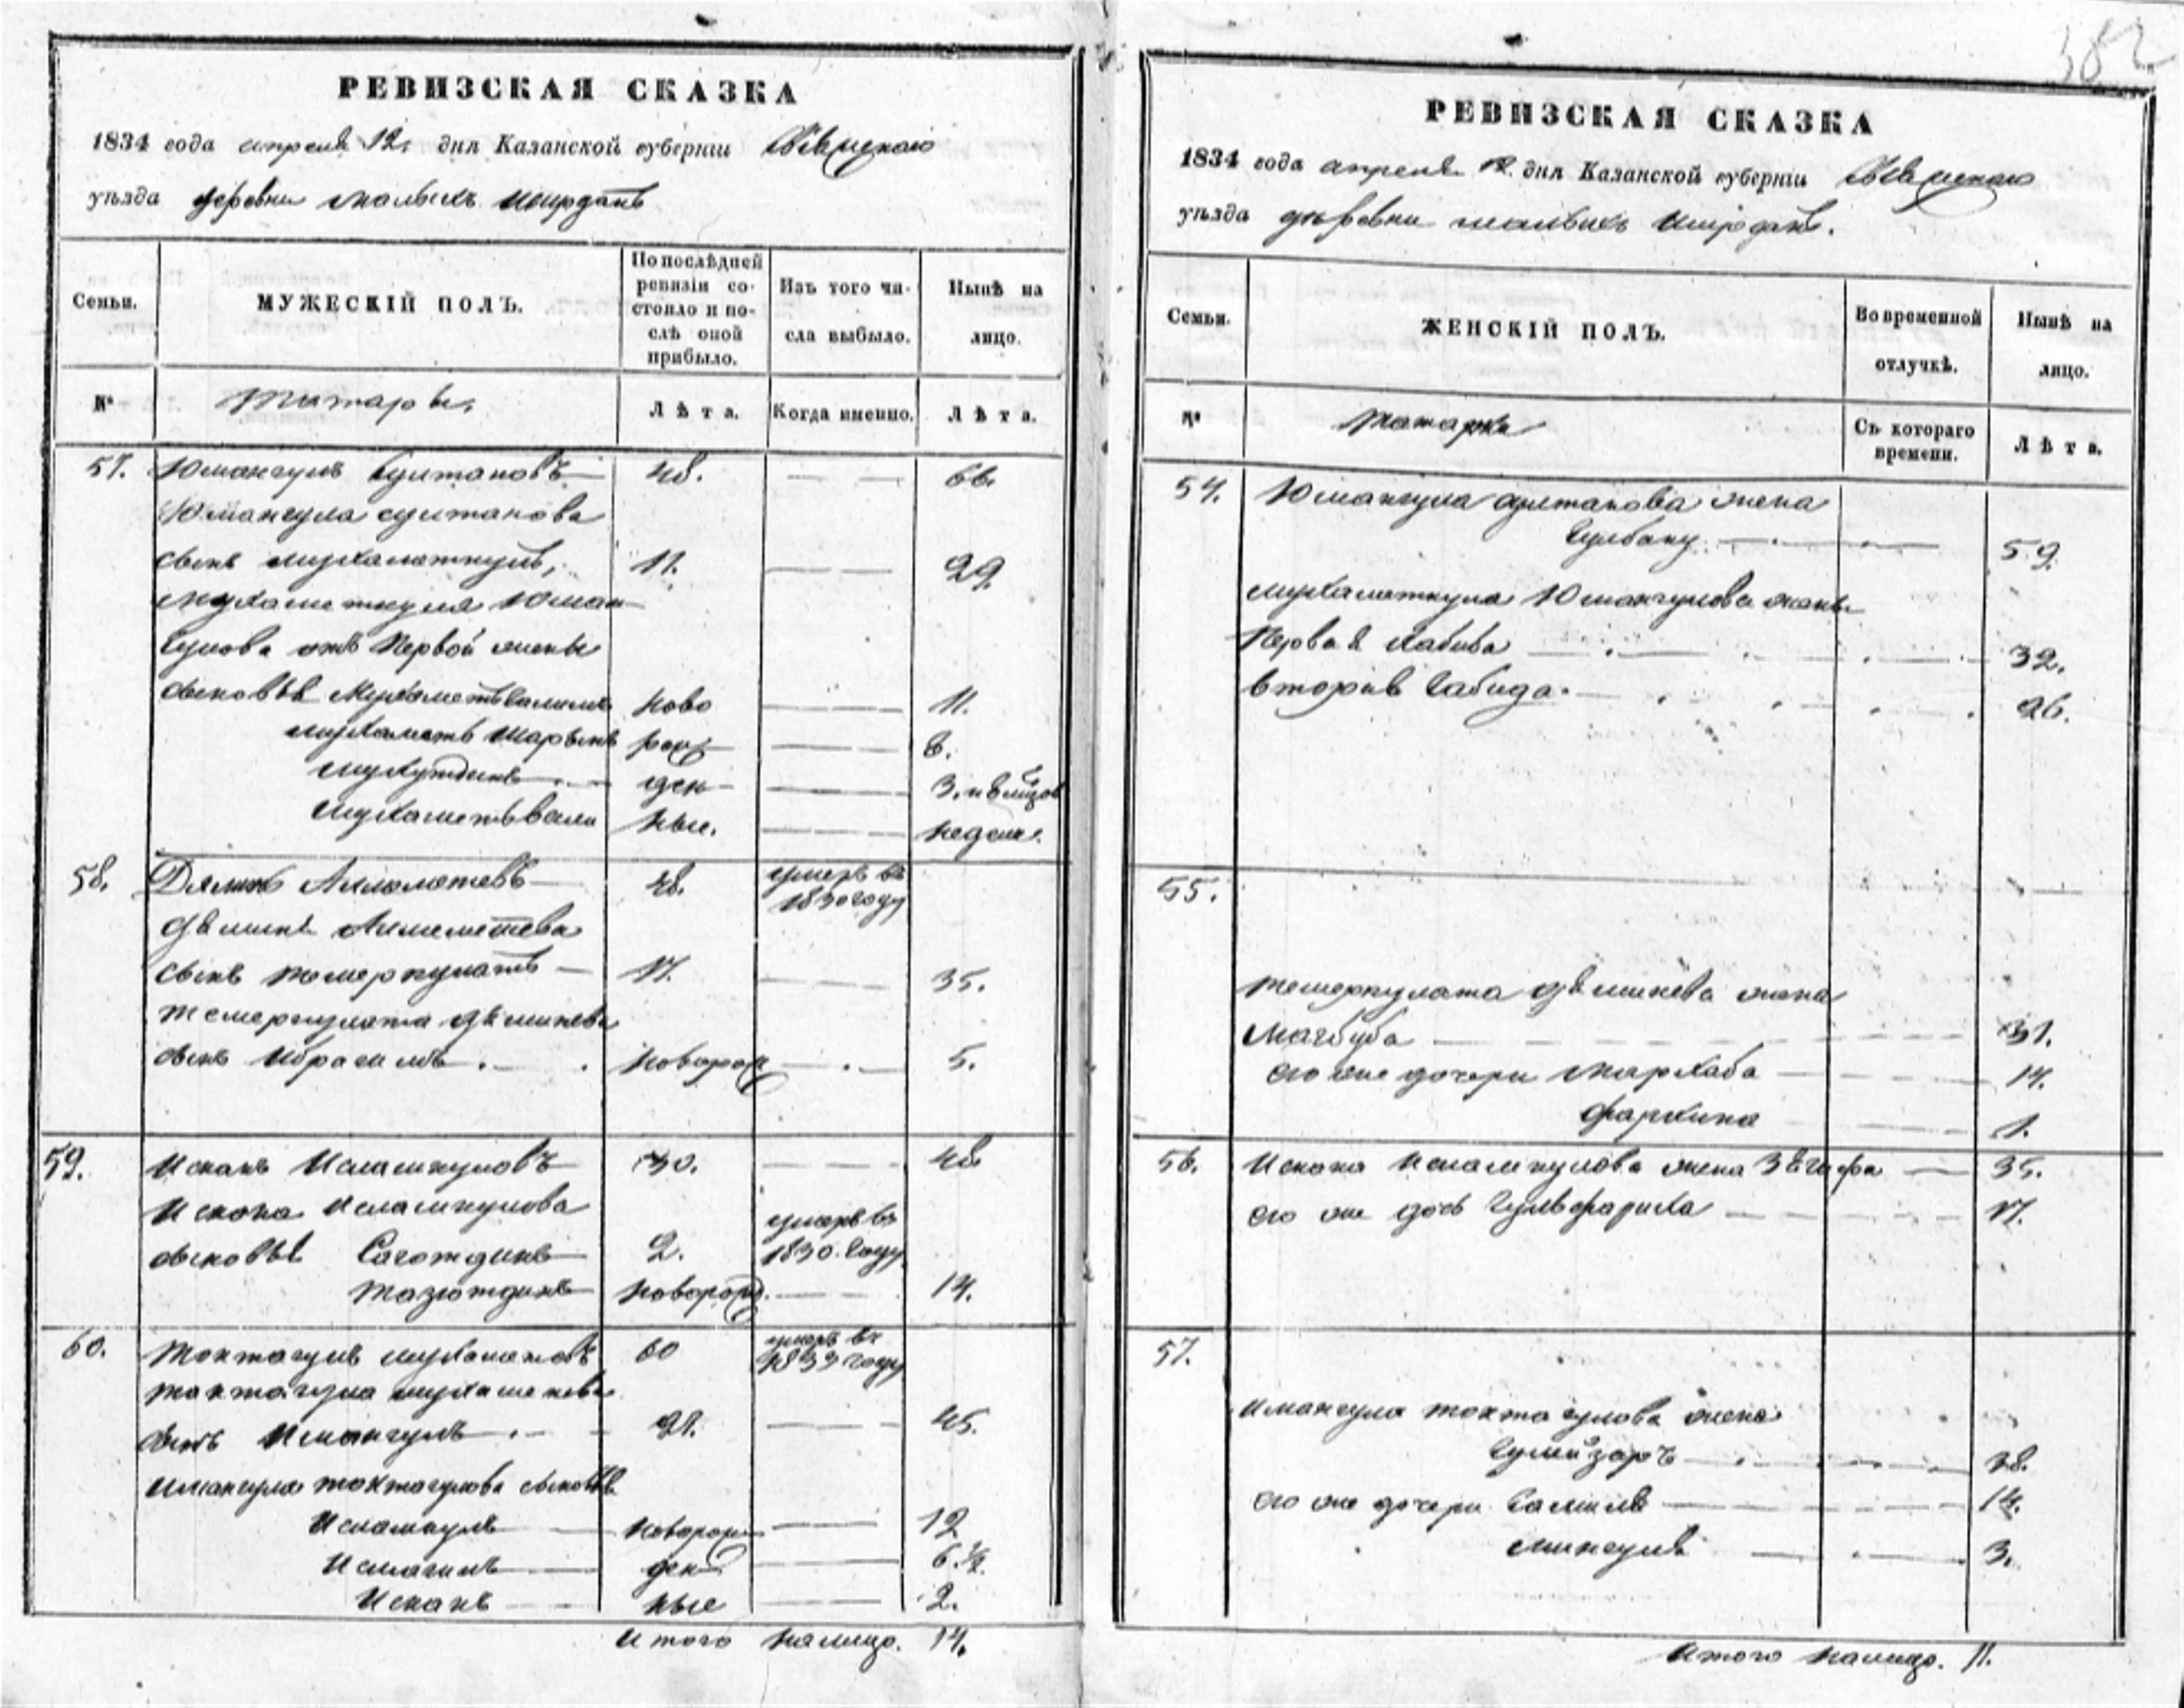 382
РЕВИЗСКАЯ СКАЗКА
1834 года апреля 12 дня Казанской губерніи Свіяжскаго
уѣзда деревни малыхъ Ширданъ
Семьи.
МУЖЕСКІЙ ПОЛЪ.
По послѣдней ревизіи состояло и послѣ оной прибыло.
Изъ того числа выбыло.
Нынѣ на лицо.
№
татары
Лѣта.
Когда именно.
Лѣта.
57. Юмангулъ Султановъ 48. 66.
Юмангула султанова
сынъ мухаметкулъ, 11. 29
мухаметкула Юман
гулова отъ Первой жены
сыновья Мухаметвалилъ ново 11.
мухаметъ Шарыпъ рож 8.
ден 3. и 8 мцов
Мухаметъвали ные. недели.
58. Алмаметевъ 48. умеръ въ 1830 году
Алмаметева
сынъ темеркулатъ 17. 35.
темеркулата
сынъ Ибрагимъ 5.
59. Исхакъ Исламкуловъ 30. 48
Исхака Исламкулова
сыновья 2. умеръ въ 1830. году
новорожд. 14.
60. Тохтагулъ 60 умеръ въ 1833 году
тохтагула
сынъ Имангулъ 27. 45.
имангула тохтагулова сыновья
Исламгулъ новорож 12
Исмагилъ ден 6 ½.
Исхакъ ные 2.
Итого налицо. 14.
РЕВИЗСКАЯ СКАЗКА
1834 года апреля 12 дня Казанской губерніи Свіяжскаго
уѣзда деревни малыхъ Ширданъ.
Семьи.
ЖЕНСКІЙ ПОЛЪ.
Во временной отлучкѣ.
Нынѣ на лицо.
№
татарки
Съ котораго времени.
Лѣта.
54. Юмангула султанова жена
Гулбану 59.
мухаметкула Юмангулова жены
Первая Хабиба 32.
вторая Габида 26.
55.
темеркулата жена
Магбуба 31.
его же дочери Мархаба 14.
Фархина 1.
56. Исхака Исламкулова жена 35.
его же дочь 17.
57.
Имангула тохтагулова жена
38.
его же дочери 14.
Мингулъ 3.
Итого налицо. 11.